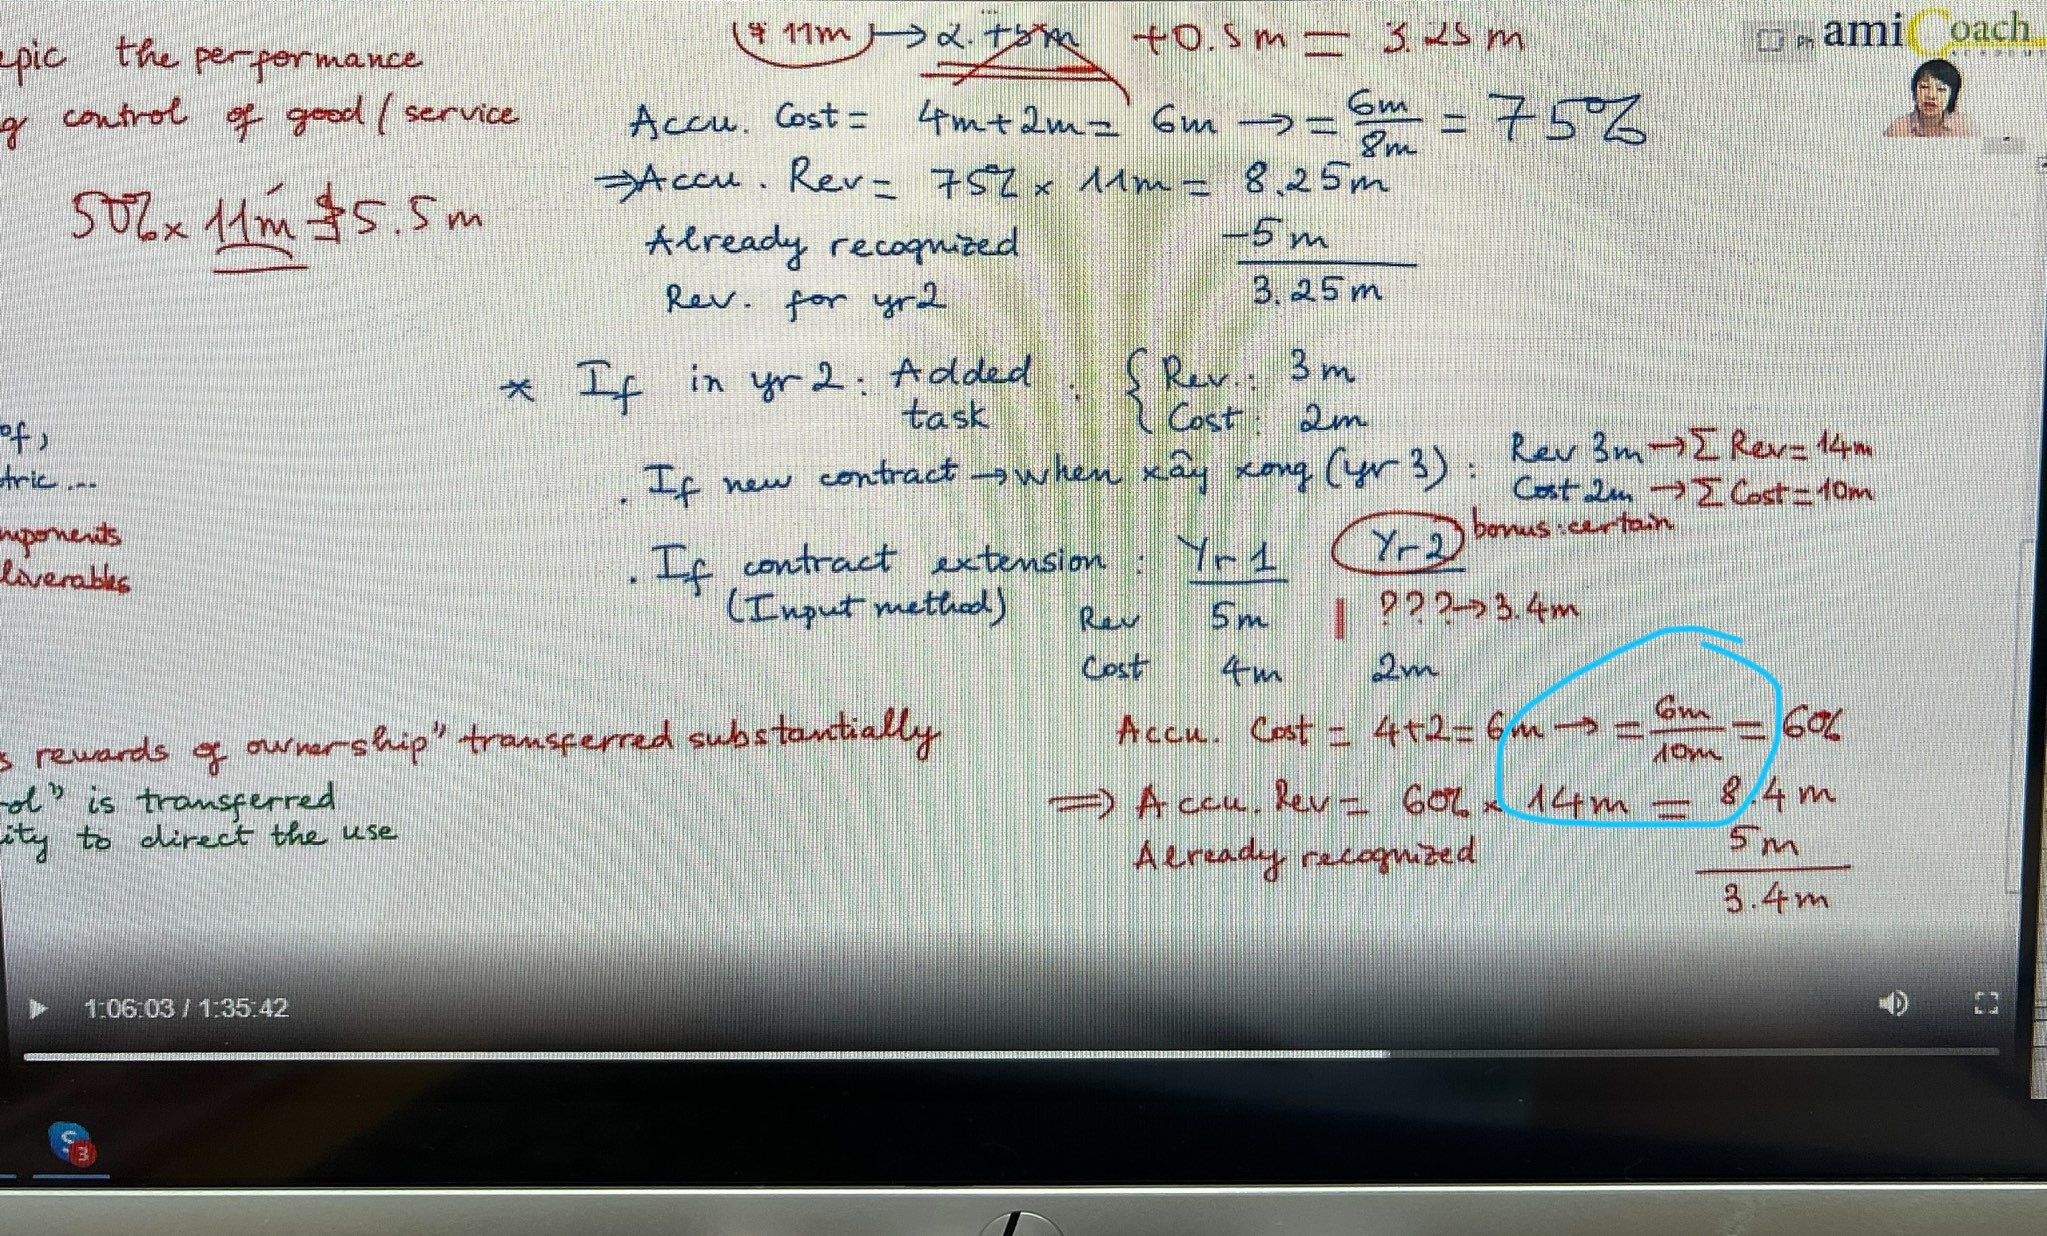 epic the performance
g control of good / service
50% x 11m = $5.5m
of,
tric ...
mponents
liverables
s rewards of ownership" transferred substantially
ol" is transferred
ity to direct the use
11m → +0.5m = 3.25m
Accu. Cost = 4m + 2m = 6m → = 6m / 8m = 75%
⇒ Accu. Rev = 75% x 11m = 8.25m
Already recognized -5m
Rev. for yr2 3.25m
* If in yr 2: Added task : { Rev.: 3m
Cost: 2m
. If new contract → when xây xong (yr 3) : Rev 3m → Σ Rev = 14m
Cost 2m → Σ Cost = 10m
. If contract extension : Yr 1 Yr 2 bonus: certain
(Input method) Rev 5m | ??? → 3.4m
Cost 4m 2m
Accu. Cost = 4+2 = 6m → = 6m / 10m = 60%
⇒ Accu. Rev = 60% x 14m = 8.4m
Already recognized 5m
3.4m
amiCoach
1:06:03 / 1:35:42
S
3